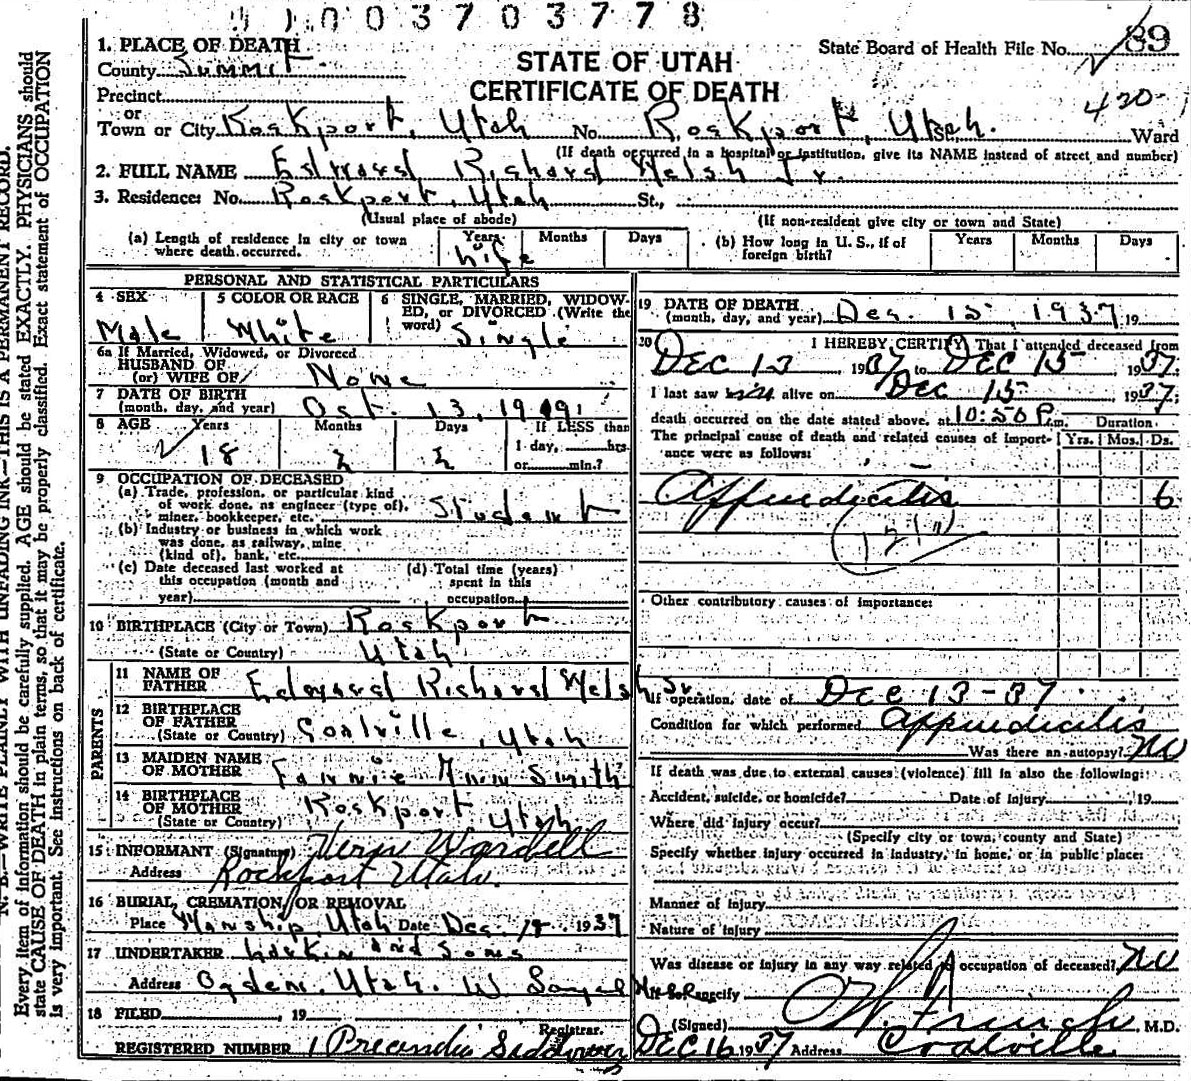 003703778
1. PLACE OF DEATH
County Summit
STATE OF UTAH
CERTIFICATE OF DEATH
State Board of Health File No. 89
420
Precinct
or
Town or City Rockport, Utah No. Rockport, Utah. Ward
(If death occurred in a hospital or institution, give its NAME instead of street and number)
2. FULL NAME Edward Richard Welsh Jr.
3. Residence: No. Rockport, Utah St.,
(Usual place of abode) (If non-resident give city or town and State)
(a) Length of residence in city or town where death occurred. Years Life Months Days
(b) How long in U. S., if of foreign birth? Years Months Days
PERSONAL AND STATISTICAL PARTICULARS
4 SEX Male
5 COLOR OR RACE White
6 SINGLE, MARRIED, WIDOWED, or DIVORCED (Write the word) Single
6a If Married, Widowed, or Divorced
HUSBAND OF
(or) WIFE OF None
7 DATE OF BIRTH
(month, day, and year) Oct. 13, 1919
8 AGE Years 18 Months 2 Days 2 If LESS than
1 day, hrs.
or min.?
9 OCCUPATION OF DECEASED
(a) Trade, profession, or particular kind
of work done, as engineer (type of),
miner, bookkeeper, etc. Student
(b) Industry or business in which work
was done, as railway, mine
(kind of), bank, etc.
(c) Date deceased last worked at
this occupation (month and
year)
(d) Total time (years)
spent in this
occupation
10 BIRTHPLACE (City or Town) Rockport
(State or Country) Utah
PARENTS
11 NAME OF FATHER Edward Richard Welsh Sr.
12 BIRTHPLACE OF FATHER
(State or Country) Coalville, Utah
13 MAIDEN NAME OF MOTHER Fannie Ann Smith
14 BIRTHPLACE OF MOTHER
(State or Country) Rockport Utah
15 INFORMANT (Signature) Verne Wardell
Address Rockport Utah.
16 BURIAL, CREMATION, OR REMOVAL
Place Wanship, Utah Date Dec. 18, 1937
17 UNDERTAKER Larkin and Sons
Address Ogden, Utah.
18 FILED , 19
Registrar.
REGISTERED NUMBER 1
19 DATE OF DEATH
(month, day, and year) Dec. 15, 1937 19
20 I HEREBY CERTIFY, That I attended deceased from
DEC 13, 1937 to DEC 15- 1937.
I last saw him alive on Dec 15- 1937;
death occurred on the date stated above, at 10:50 P.m. Duration
The principal cause of death and related causes of importance were as follows: Yrs. Mos. Ds.
Appendicitis 6
(121)
Other contributory causes of importance:
If operation, date of DEC 13-37
Condition for which performed Appendicitis
Was there an autopsy? NO
If death was due to external causes (violence) fill in also the following:
Accident, suicide, or homicide? Date of injury , 19
Where did injury occur?
(Specify city or town, county and State)
Specify whether injury occurred in industry, in home, or in public place:
Manner of injury
Nature of injury
Was disease or injury in any way related to occupation of deceased? NO
If so, specify
(Signed) M.D.
DEC 16 1937 Address Coalville
N. B.—WRITE PLAINLY WITH UNFADING INK—THIS IS A PERMANENT RECORD.
Every item of information should be carefully supplied. AGE should be stated EXACTLY. PHYSICIANS should
state CAUSE OF DEATH in plain terms, so that it may be properly classified. Exact statement of OCCUPATION
is very important. See instructions on back of certificate.